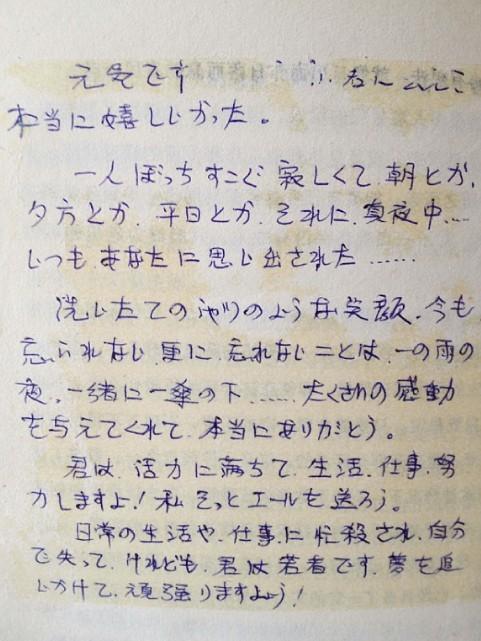 元気です 君に
本当に嬉ししかった。
一人ぼっちすごぐ寂しくて、朝とか、
夕方とか、平日とか、それに、真夜中....
いつも、あなたに思い出された......
洗いたてのシャツのような笑顔、今も
忘られない、更に忘れないことは、一の雨の
夜、一緒に一傘の下...... たくさんの感動
を与えてくれて、本当にありがとう。
君は、活力に満ちて、生活、仕事、努
力しますよ!私そっとエールを送ろう。
日常の生活や、仕事に忙殺され、自分
で失って、けれども、君は若者です、夢を追
いかけて、頑張りますよう!